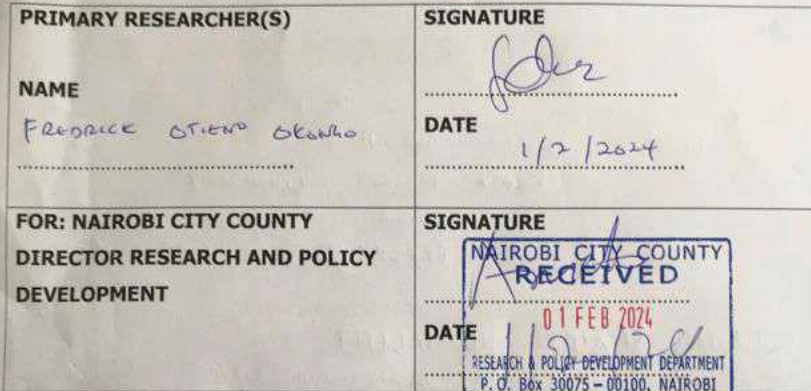 PRIMARY RESEARCHER(S)
SIGNATURE
NAME
FREDRICK OTIENO OKONGO
DATE
1/2/2024
FOR: NAIROBI CITY COUNTY
DIRECTOR RESEARCH AND POLICY
DEVELOPMENT
SIGNATURE
NAIROBI CITY COUNTY
RECEIVED
01 FEB 2024
DATE
RESEARCH & POLICY DEVELOPMENT DEPARTMENT
P. O. Box 30075 – 00100, NAIROBI